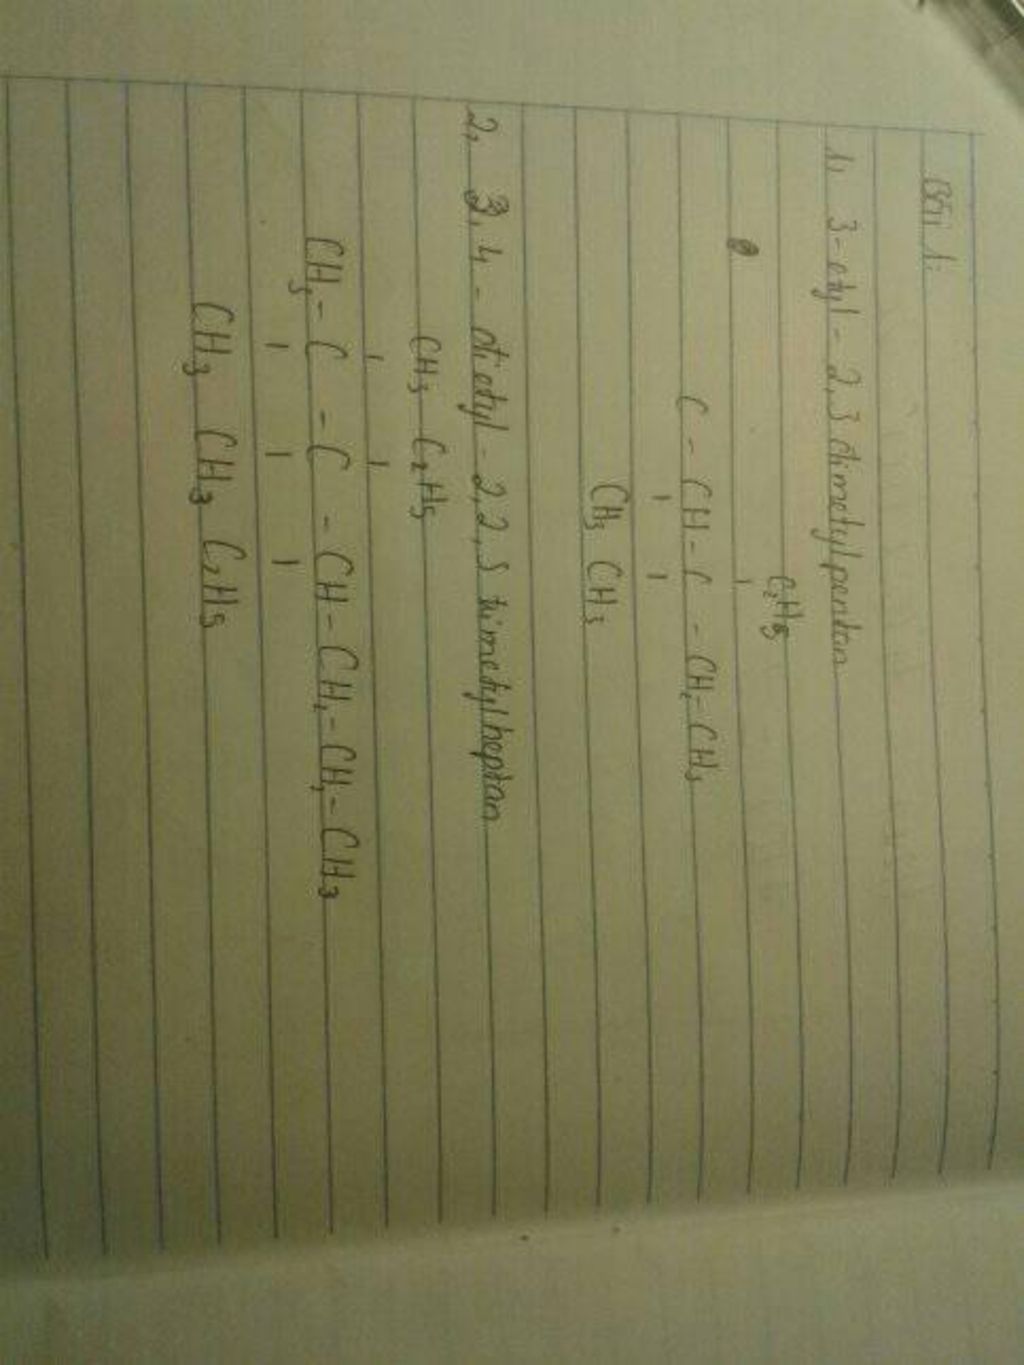 Bài 1:
1, 3-etyl-2,3 dimetylpentan
C₂H₅
C - CH - C - CH₂ - CH₃
CH₃ CH₃
2, 3,4-dietyl-2,2,3 trimetylheptan
CH₃ C₂H₅
CH₃ - C - C - CH - CH₂ - CH₂ - CH₃
CH₃ CH₃ C₂H₅